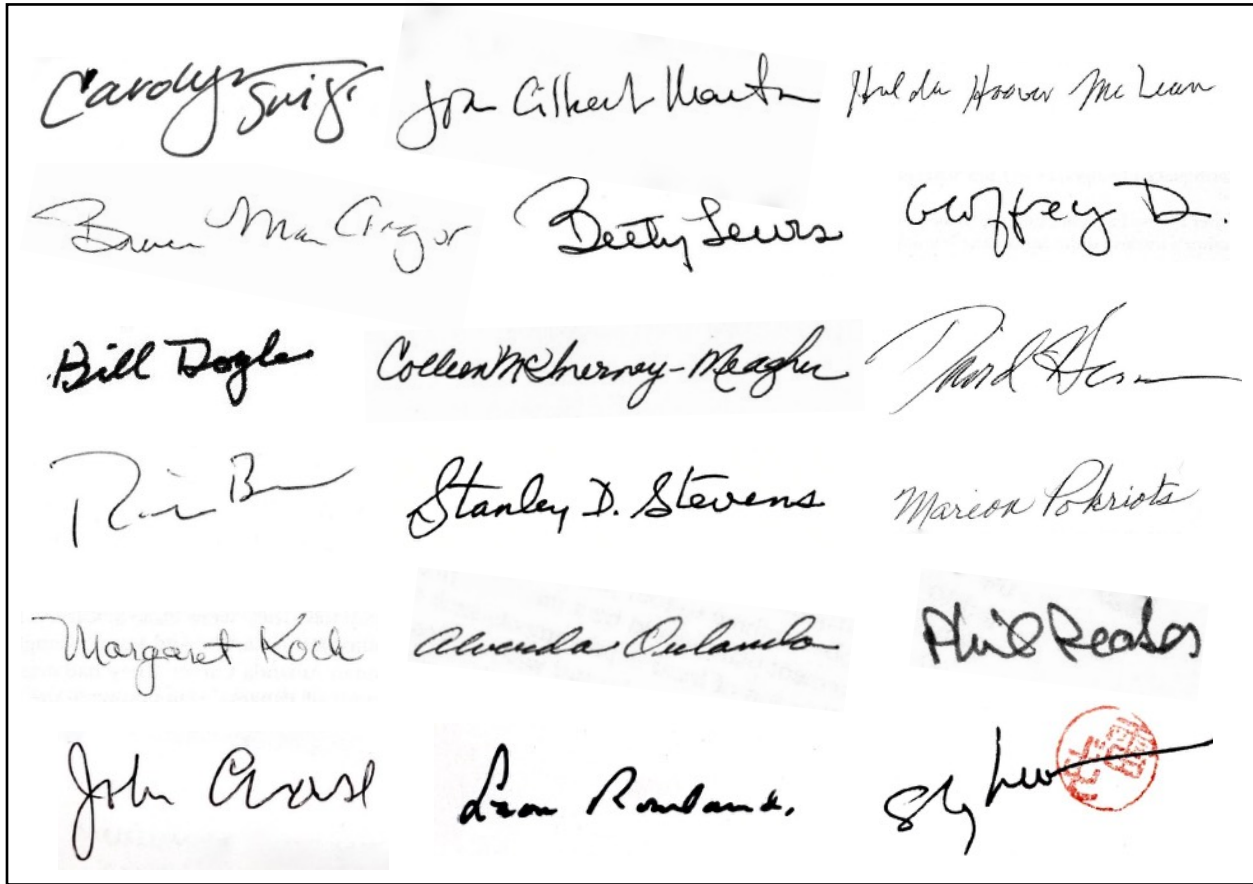 Carolyn Swift John Gilbert Martin Hulda Hoover McLean
Bruce MacGregor Betty Lewis Geoffrey D.
Bill Doyle Colleen McInerney-Meagher David
Stanley D. Stevens Marion Pokriots
Margaret Koch Alverda Orlando Phil Reader
John Chase Leon Rowland